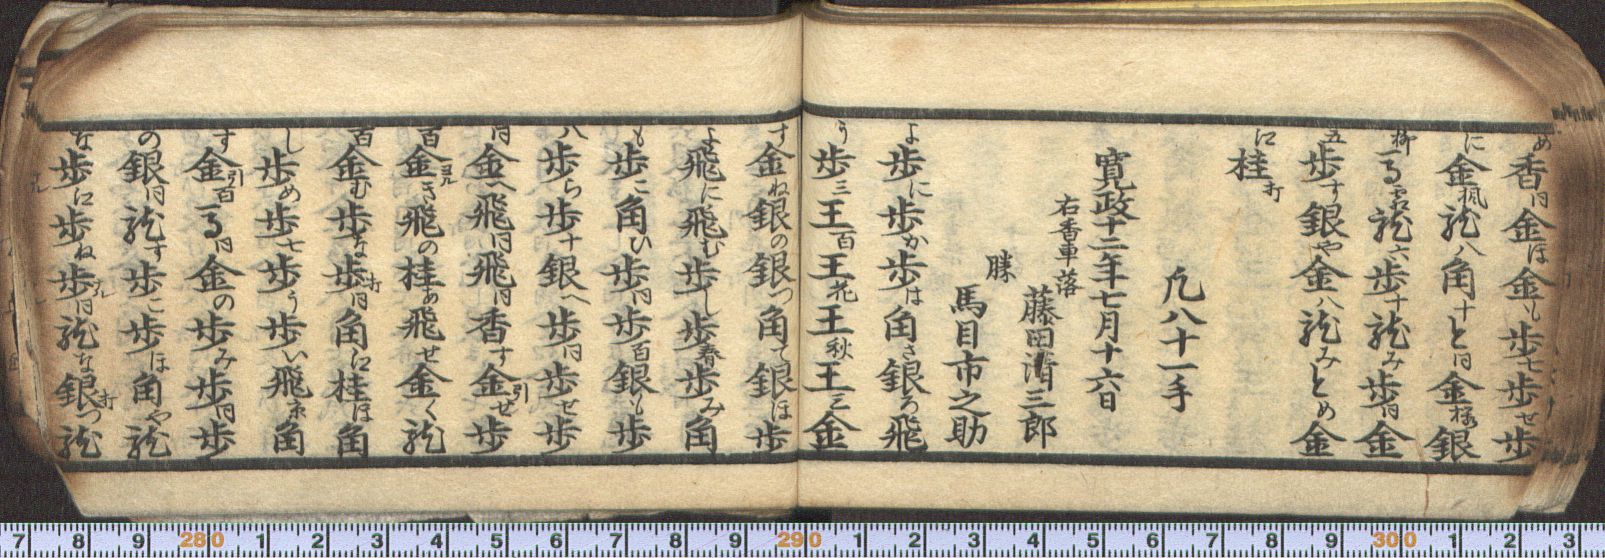 め香同金ほ金も歩七歩せ歩
に金楓龍八角十と同金桜銀
柳馬龍六歩十龍み歩同金
五歩す銀や金八龍みとめ金
江桂打
凡八十一手
寛政十二年七月十六日
右香車落
藤田清三郎
勝
馬目市之助
よ歩に歩か歩は角さ銀ろ飛
う歩三王百王花王秋王三金
す金ね銀の銀つ角て銀ほ歩
よ飛に飛む歩し歩春歩み角
も歩こ角ひ歩同歩百銀も歩
八歩ら歩十銀へ歩同歩せ歩
同金へ飛同飛同香す金引せ歩
百金き飛の桂あ飛せ金く龍
百金む歩な歩打同角江桂ほ角
し歩め歩七歩う歩い飛京角
す金引百馬同金の歩み歩同歩
の銀同龍す歩こ歩ほ角や龍
な歩江歩ね歩同龍な銀打つ龍
7 8 9 280 1 2 3 4 5 6 7 8 9 290 1 2 3 4 5 6 7 8 9 300 1 2 3